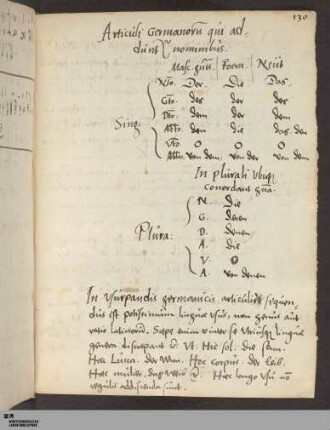 130
Articuli Germanorū qui ad-
duntʳ nominibus.
Masc. gn̄is | Foem. | Neut
Sing
Nto. Der. Die Das.
Gto. des der des
Dto. dem der dem
Acto. den die das, den
Vto. O O O
Abto. von dem. von der von dem
In plurali ubiq3
concordant gn̄a.
Plura:
N. Die
G. deren
D. denen
A. die
V. O
A. von denen
In usurpandis germanicis articulis sequen-
dus est potissimum linguae usus, non genus aut
ratio latinorū. Saepe enim inter se utriusq3 linguae
genera discrepant Ut. Hic sol. die sun.
Haec Luna. der Mon. Hoc corpus. der Leib.
Haec mulier, das Weib Haec longo usu nō
regulis addiscenda sunt.